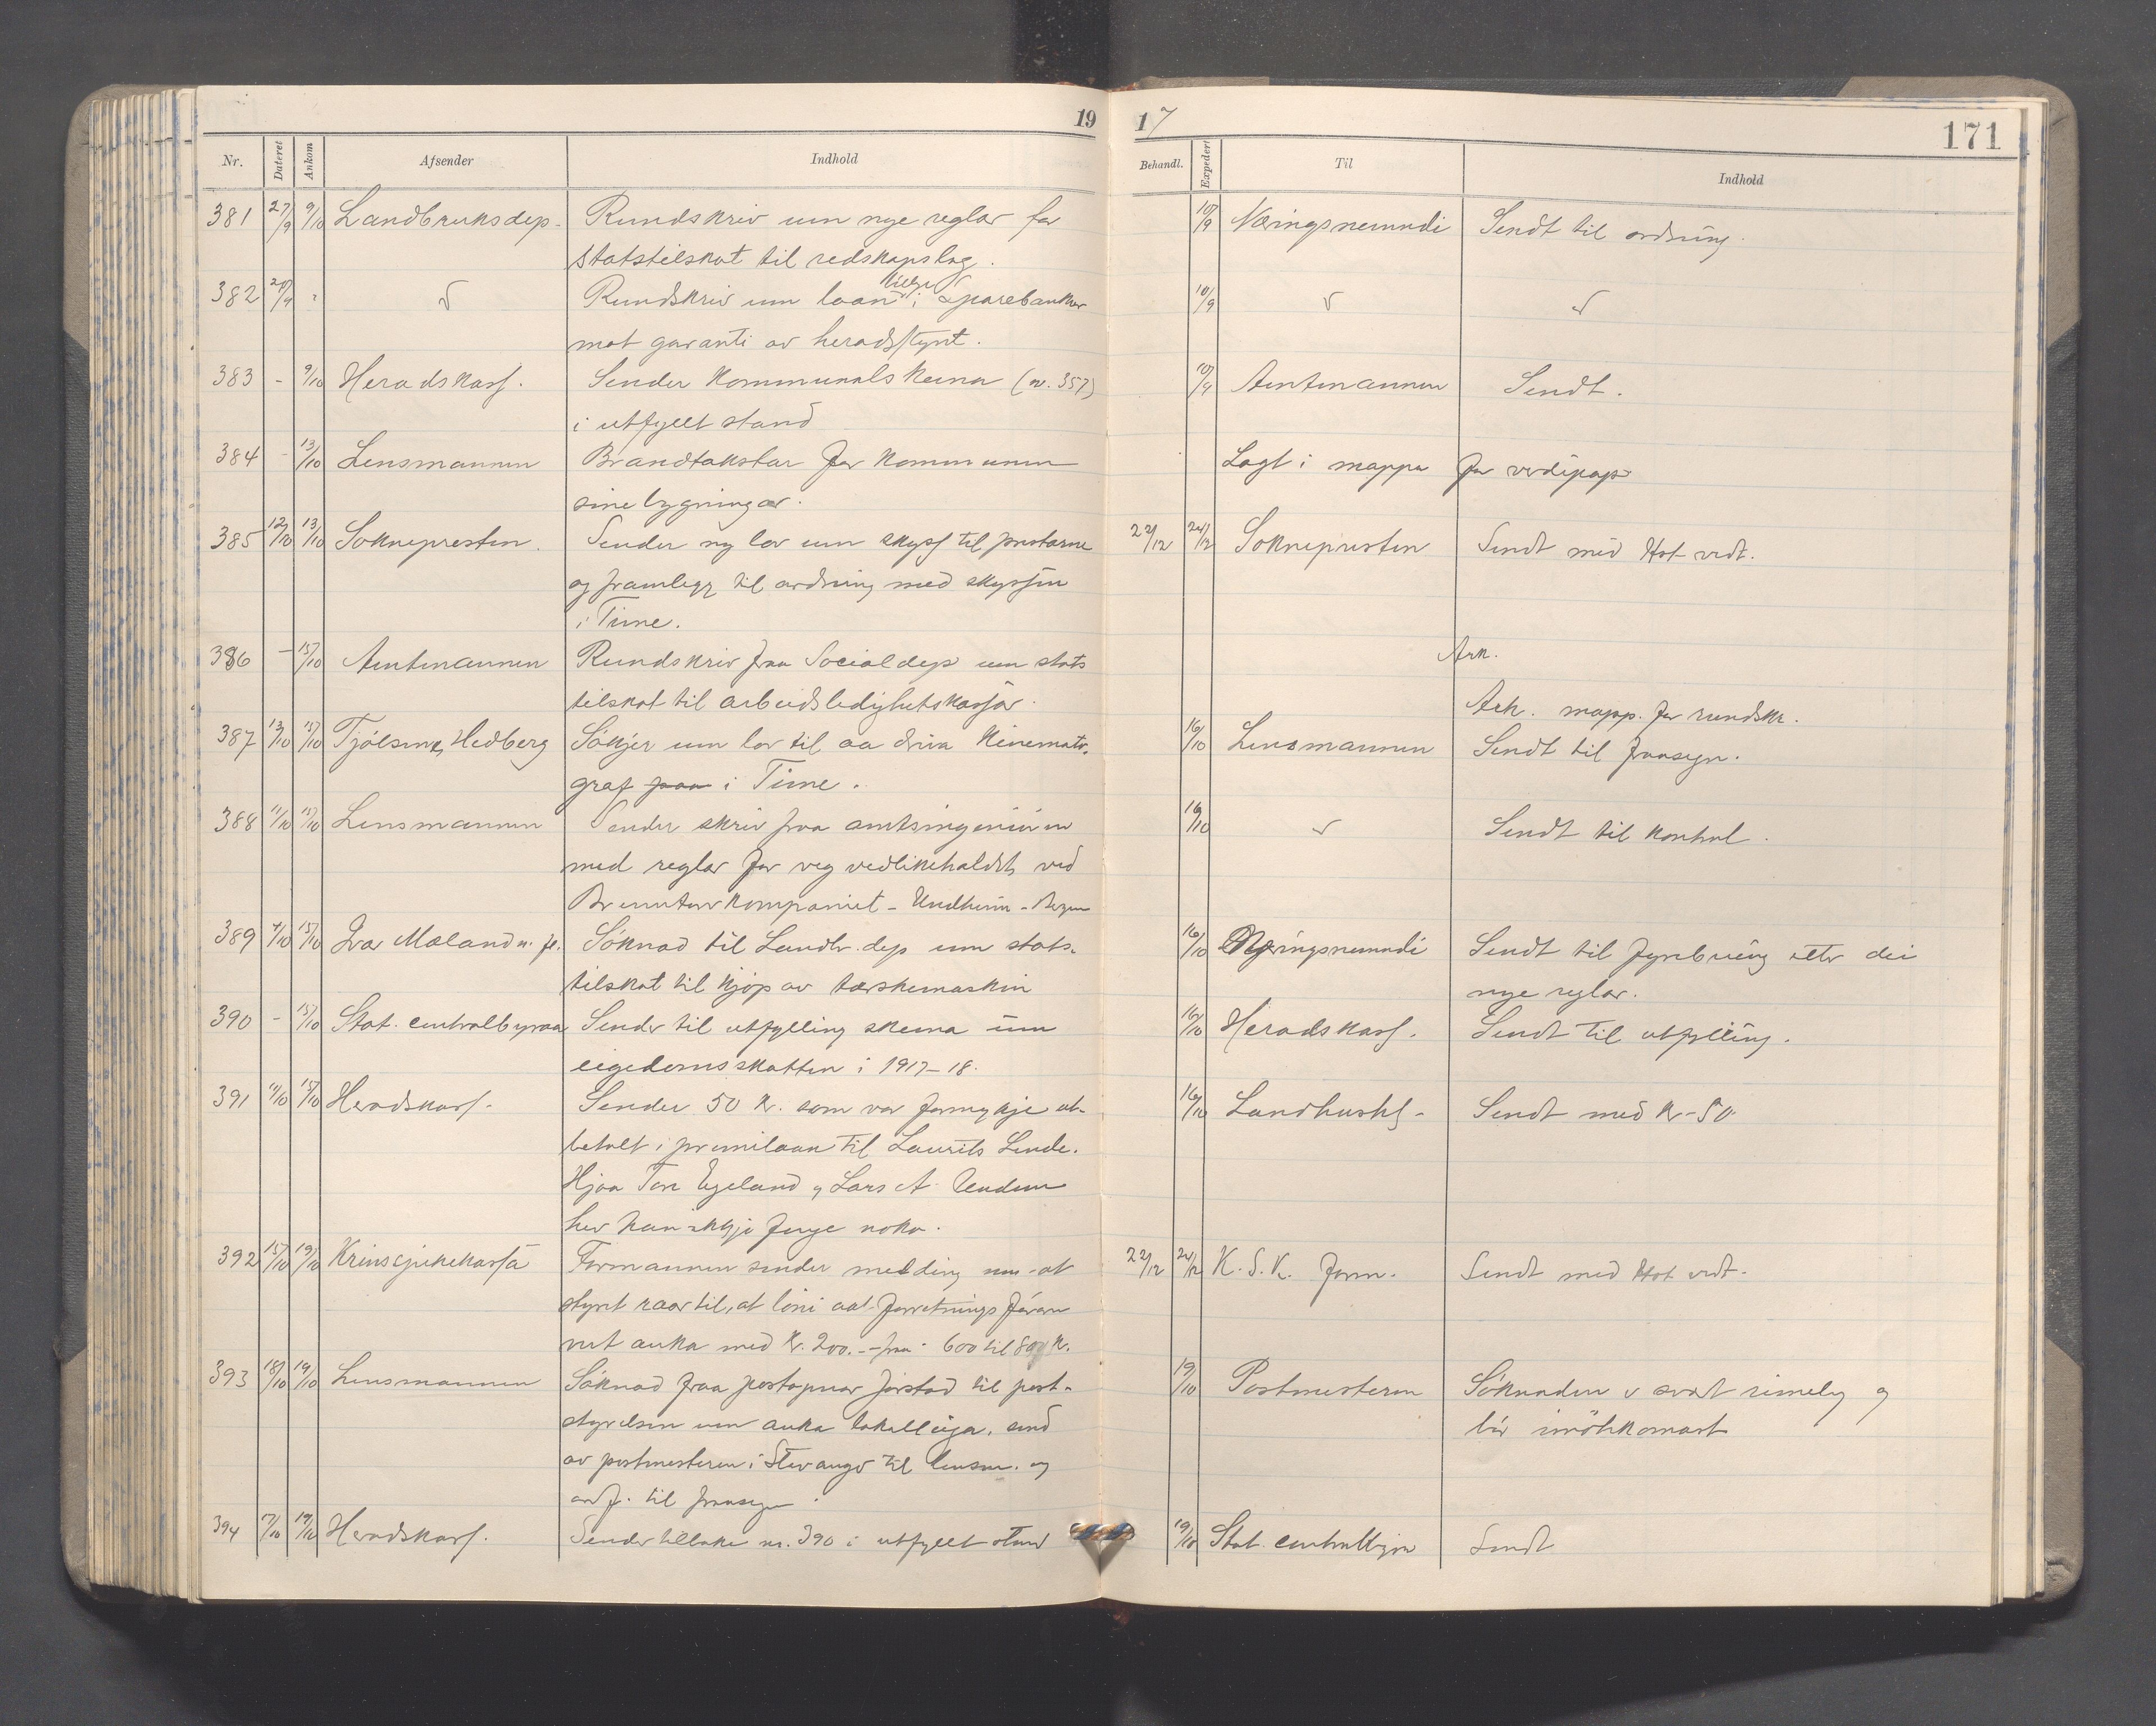 19 17 171
Nr. Dateret Ankom Afsender Indhold Behandl. Expedert Til Indhold
381 27/9 9/10 Landbruksdep. Rundskriv um nye reglar for 10/9 Næringsnemndi Sendt til ordning.
statstilskot til redskapslag.
382 9/10 Rundskriv um laan i sparebankar 10/9
mot garanti av heradstyret.
383 - 9/10 Heradskass. Sender kommunalskema (nr. 357) 10/9 Amtmannen Sendt.
i utfyllt stand
384 - 13/10 Lensmannen Brandtakstar for kommunen Lagt i mappa for verdipap
sine bygningar.
385 12/10 13/10 Soknepresten. Sender ny lov um skyss til prestarne 22/12 24/12 Soknepresten Sendt med Hst vedt.
og framlegg til ordning med skyssen
i Time.
386 - 15/10 Amtmannen Rundskriv fraa Socialdep um stats Ark.
tilskot til arbeidsledighetskassor.
Ark. mapp. for rundskr.
387 13/10 15/10 Tjölsen & Hedberg Sökjer um lov til aa driva kinemato- 16/10 Lensmannen Sendt til fraasegn.
graf paa i Time.
388 11/10 15/10 Lensmannen Sender skriv fraa amtsingeniören 16/10 Sendt til kontrol.
med reglar for veg vedlikehaldet ved
kompaniet - Undheim -
389 7/10 15/10 Ivar Mæland m. fl. Söknad til Landbr. dep um stats- 16/10 Næringsnemndi Sendt til fyrebuing etter dei
tilskot til kjöp av tærskemaskin nye reglar.
390 - 15/10 Stat. centralbyraa Sender til utfylling skema um 16/10 Heradskass. Sendt til utfylling.
eigedomsskatten i 1917-18.
391 11/10 15/10 Heradskass. Sender 50 kr. som var formykje ut- 16/10 Landhuskl- Sendt med kr - 50
betalt i premilaan til Laurits Lende.
Hjaa Tore Egeland og Lars A. Undem
hev han ikkje fenge noko.
392 15/10 19/10 Krinssjukekassa Formannen sender melding um at 22/12 24/12 K. S. K. form. Sendt med Hst vedt.
styret raar til, at löni aat forretningsföraren
vert auka med kr. 200.- - fraa 600 til 800 kr.
393 18/10 19/10 Lensmannen Söknad fraa postopnar Jörstad til post- 19/10 Postmesteren Söknaden er svært rimeleg og
styrelsen um auka lokalleiga, send bör imötekomast
av postmesteren i Stavanger til lensm. og
ordf. til fraasegn.
394 7/10 19/10 Heradskass. Sender tilbake nr. 390 i utfyllt stand 19/10 Stat. centralbyra Sendt